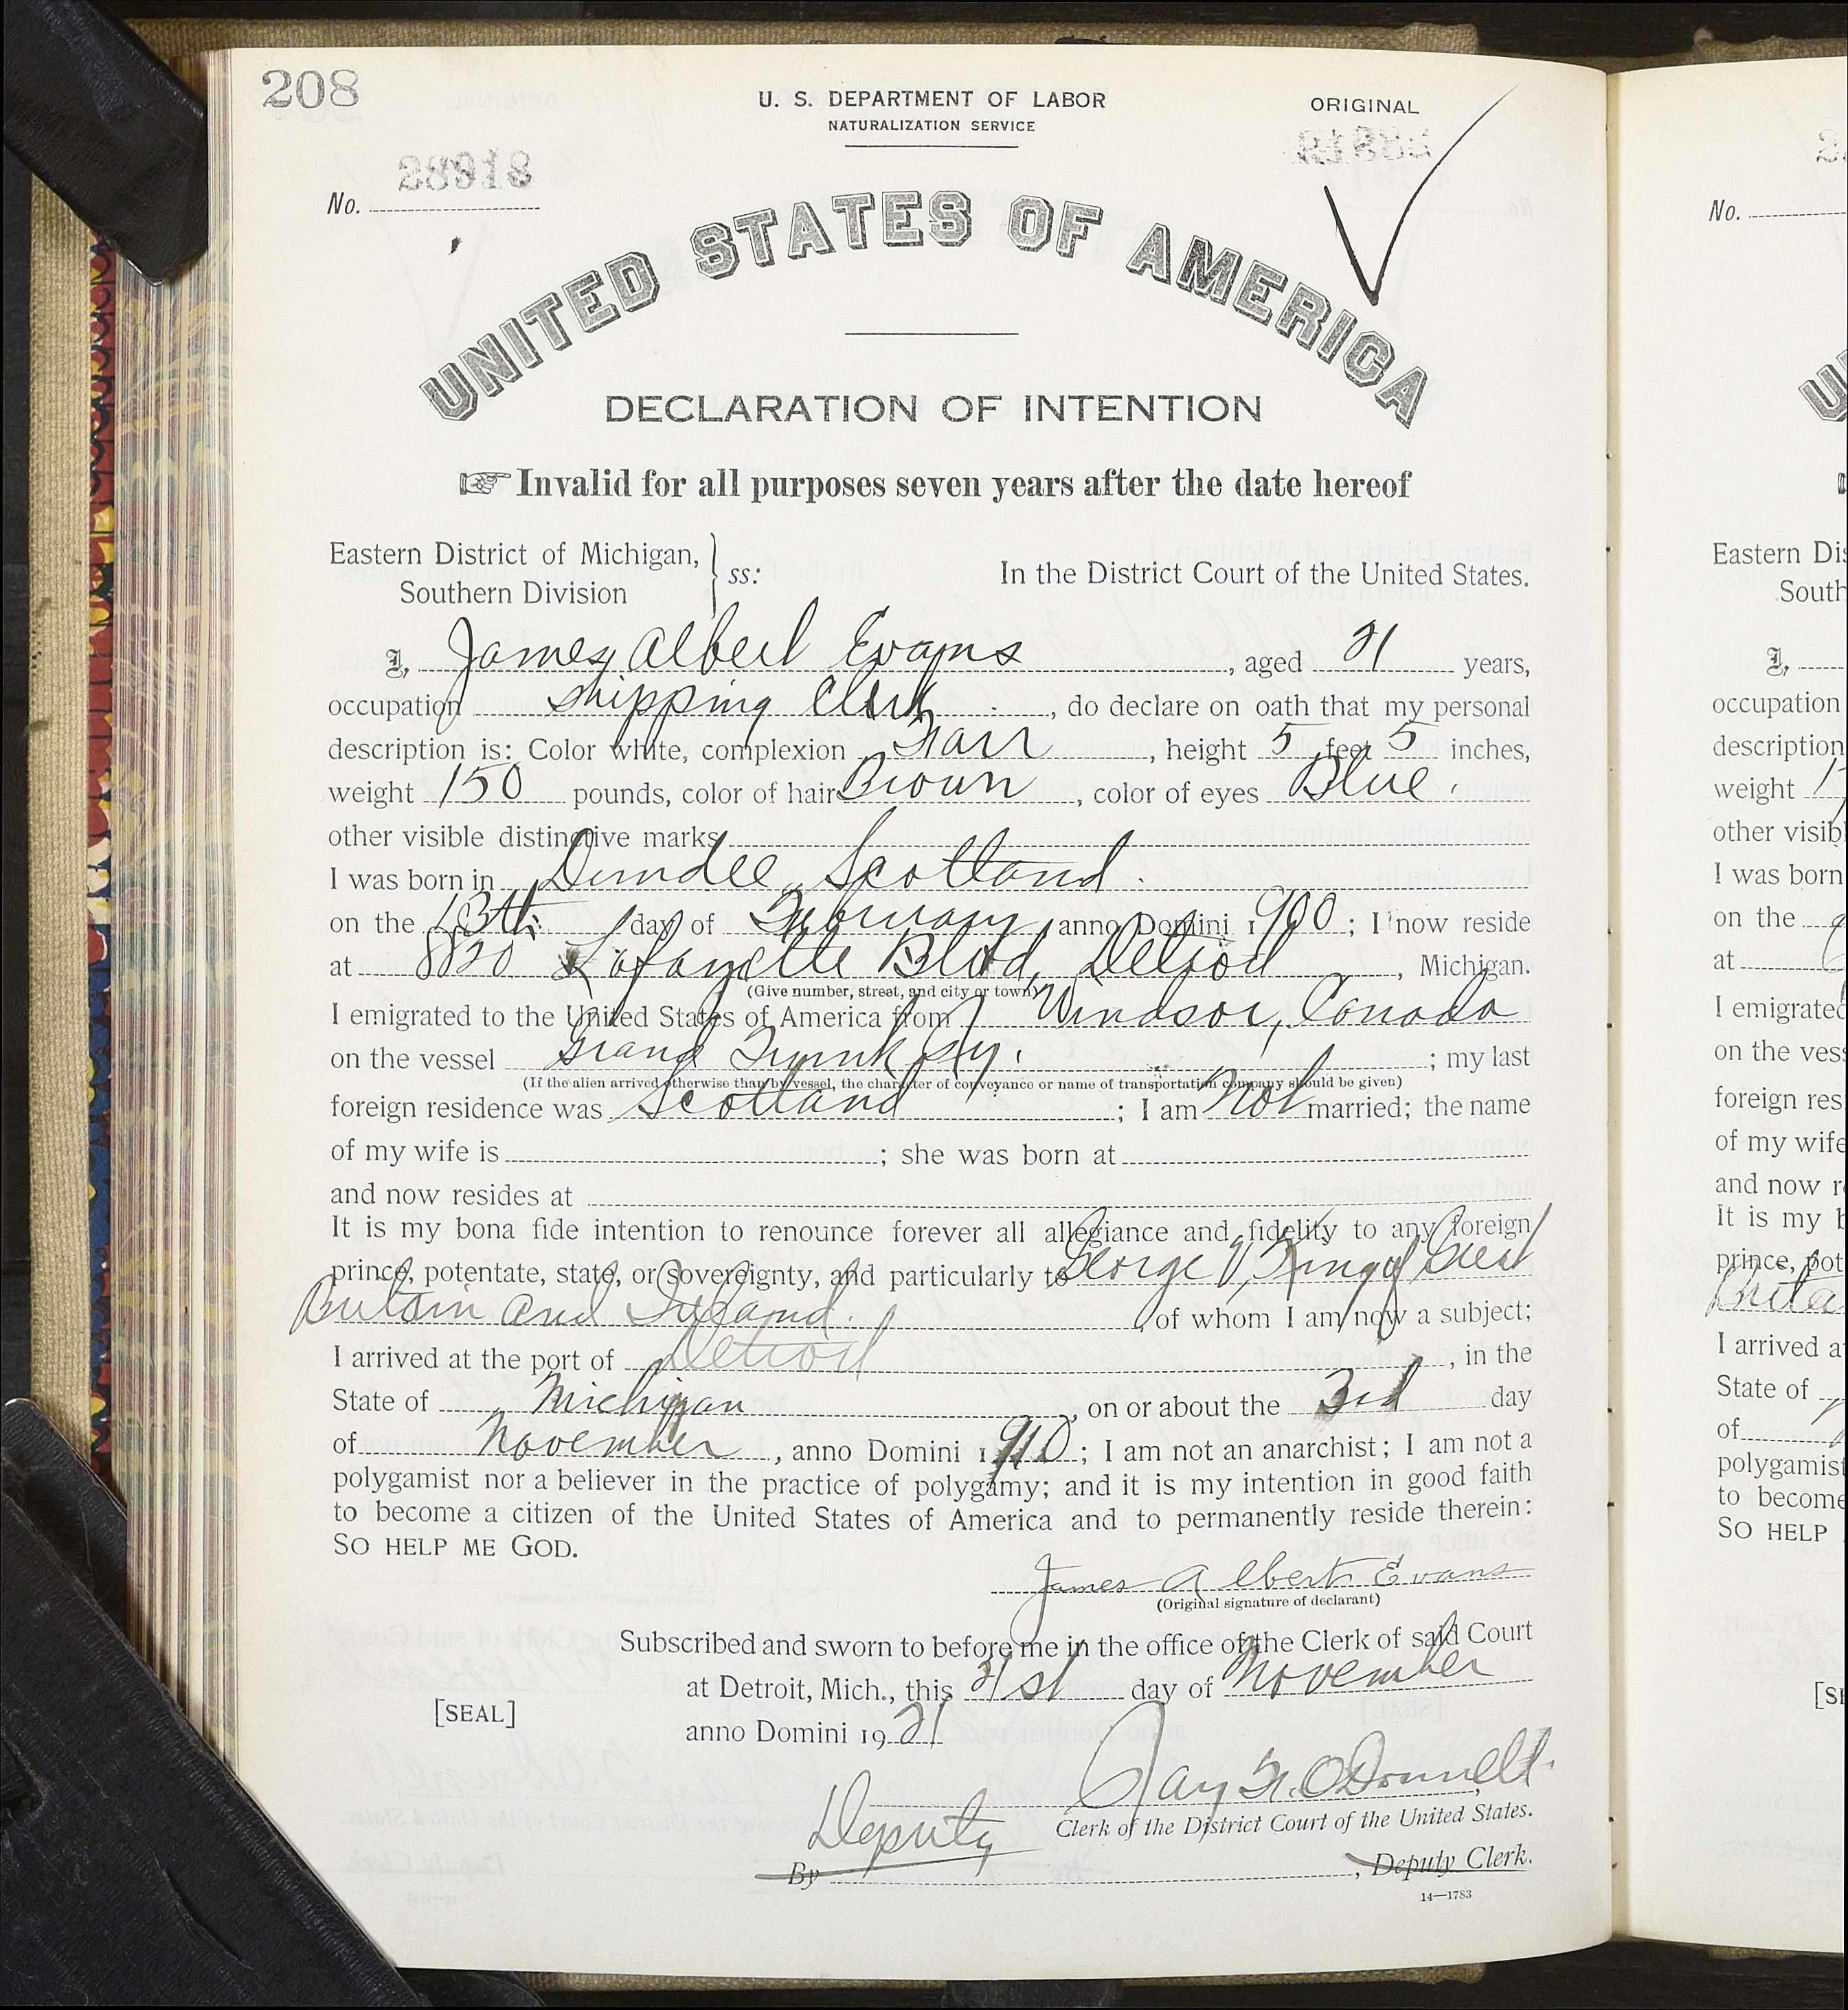 208
U. S. DEPARTMENT OF LABOR
NATURALIZATION SERVICE
ORIGINAL
No. 28918
UNITED STATES OF AMERICA
DECLARATION OF INTENTION
☞ Invalid for all purposes seven years after the date hereof
Eastern District of Michigan, } ss: In the District Court of the United States.
Southern Division
I, James Albert Evans, aged 21 years,
occupation shipping Clerk, do declare on oath that my personal
description is: Color white, complexion Fair, height 5 feet 5 inches,
weight 150 pounds, color of hair Brown, color of eyes Blue.
other visible distinctive marks
I was born in Dundee, Scotland.
on the 13th. day of February, anno Domini 1900; I now reside
at 8820 Lafayette Blvd, Detroit, Michigan.
(Give number, street, and city or town)
I emigrated to the United States of America from Windsor, Canada
on the vessel Grand Trunk Ry.; my last
(If the alien arrived otherwise than by vessel, the character of conveyance or name of transportation company should be given)
foreign residence was Scotland; I am not married; the name
of my wife is ; she was born at
and now resides at
It is my bona fide intention to renounce forever all allegiance and fidelity to any foreign
prince, potentate, state, or sovereignty, and particularly to George V, King of Great
Britain and Ireland., of whom I am now a subject;
I arrived at the port of Detroit, in the
State of Michigan, on or about the 3rd day
of November, anno Domini 1910; I am not an anarchist; I am not a
polygamist nor a believer in the practice of polygamy; and it is my intention in good faith
to become a citizen of the United States of America and to permanently reside therein:
SO HELP ME GOD.
James Albert Evans
(Original signature of declarant)
Subscribed and sworn to before me in the office of the Clerk of said Court
at Detroit, Mich., this 21st day of November
[SEAL]
anno Domini 1921
Jay H. O'Donnell.
Deputy Clerk of the District Court of the United States.
By , Deputy Clerk.
14—1783
No.
Eastern Dis
South
I,
occupation
description
weight
other visib
I was born
on the
at
I emigrated
on the vess
foreign res
of my wife
and now r
It is my b
prince, pot
I arrived a
State of
of
polygamist
to become
SO HELP
[SE